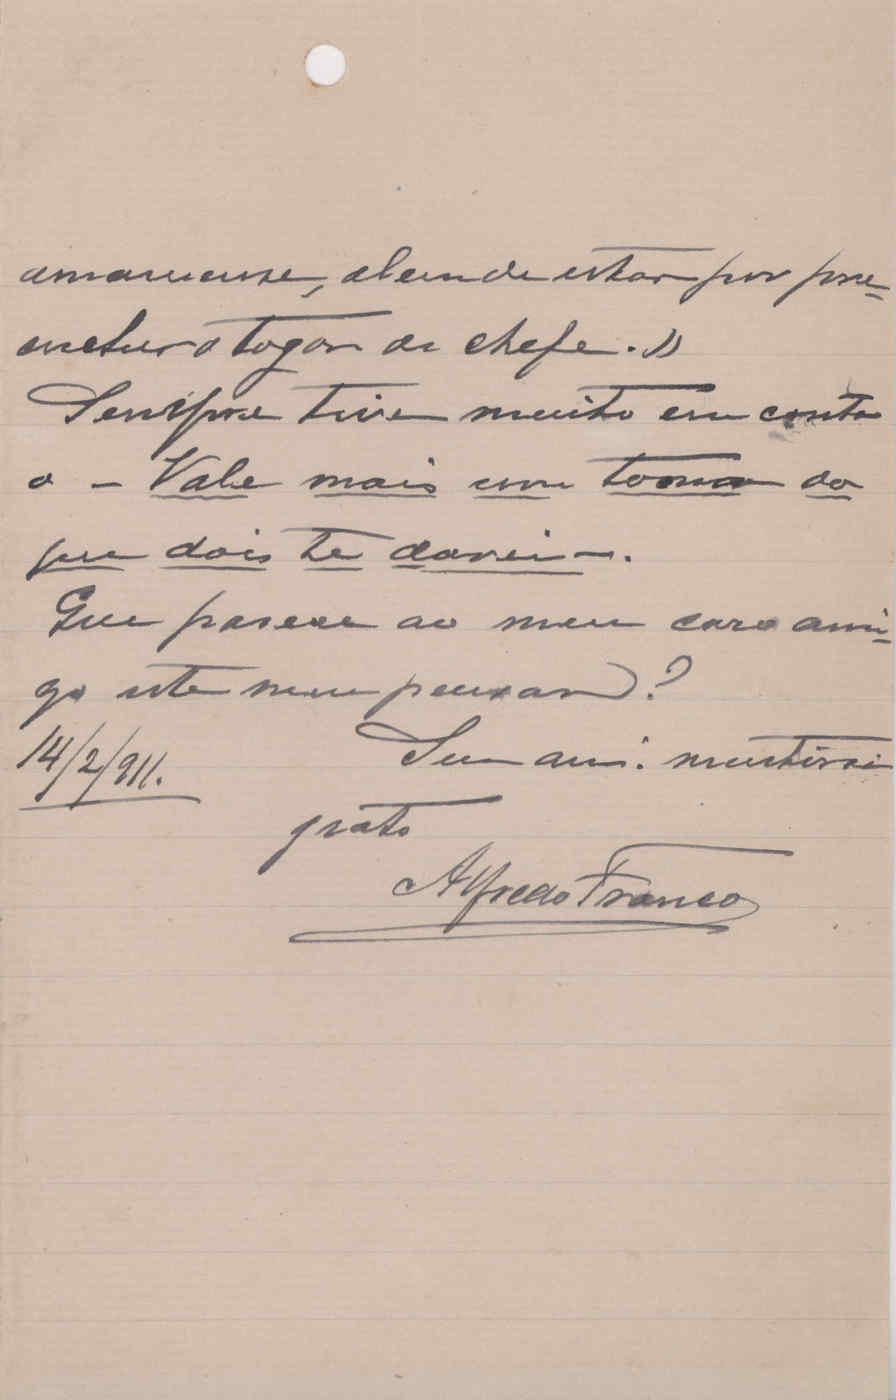 amanuense, alem de estar por pre-
encher o logar de chefe.»
Sempre tive muito em conta
o - Vale mais um toma do
que dois te darei -.
Que parece ao meu caro ami-
go este meu pensar?
14/2/911.
Seu am.º muitissi
grato
Alfredo Franco